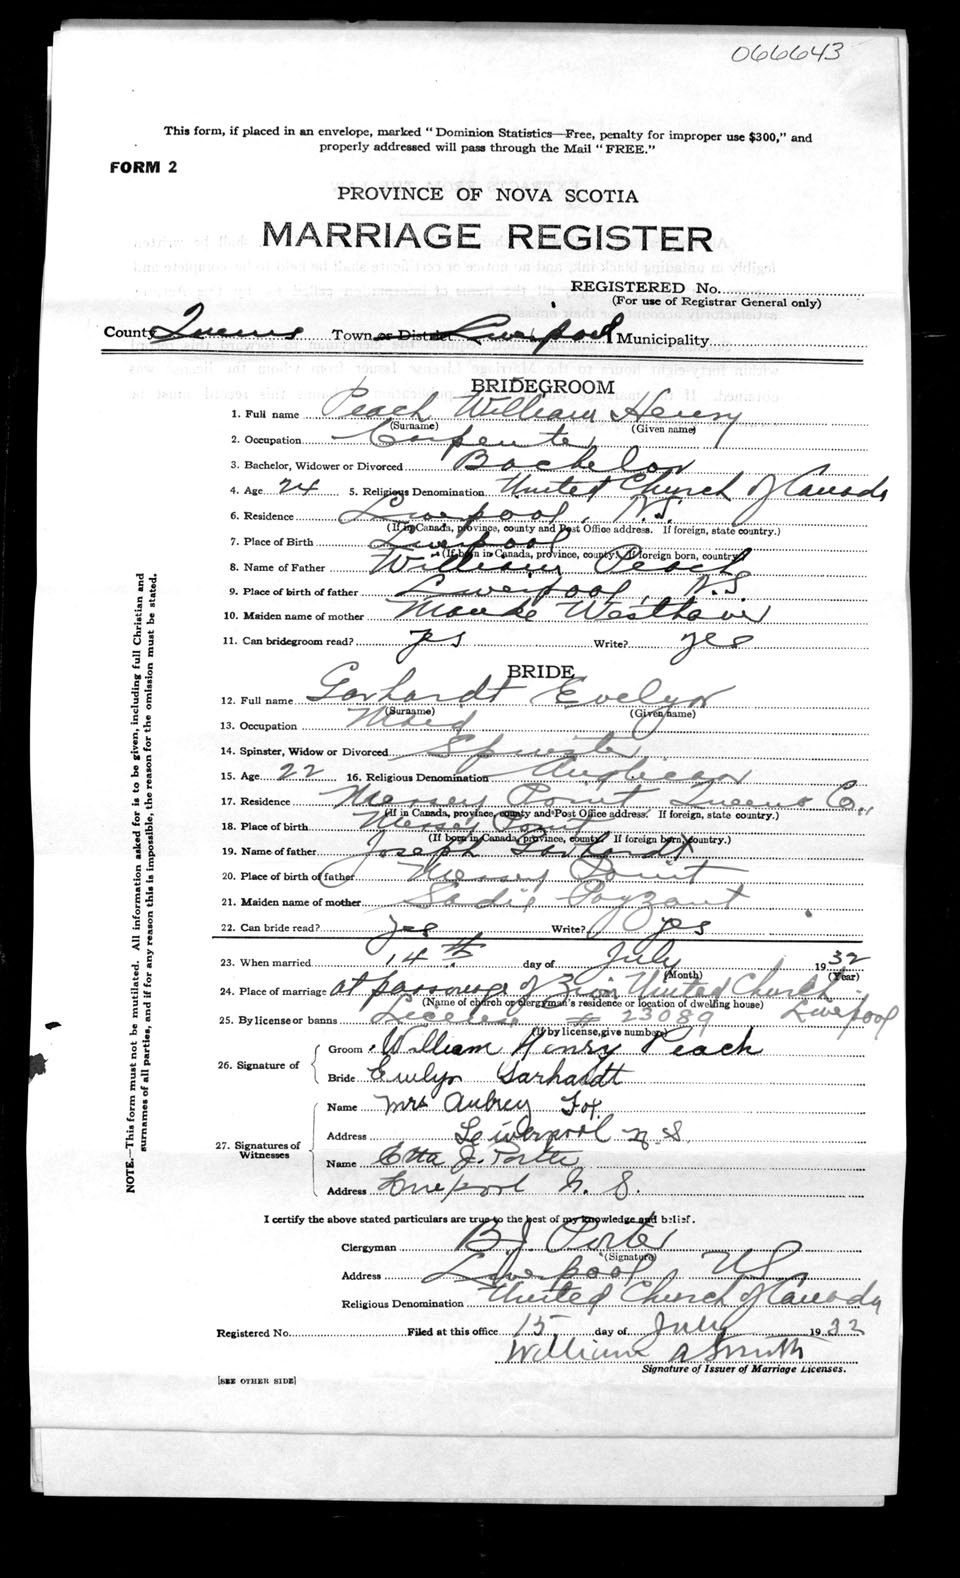 066643
This form, if placed in an envelope, marked "Dominion Statistics—Free, penalty for improper use $300," and
properly addressed will pass through the Mail "FREE."
FORM 2
PROVINCE OF NOVA SCOTIA
MARRIAGE REGISTER
REGISTERED No.
(For use of Registrar General only)
County Queens Town or District Liverpool Municipality
BRIDEGROOM
1. Full name Peach William Henry
(Surname) (Given name)
2. Occupation Carpenter
3. Bachelor, Widower or Divorced Bachelor
4. Age 24 5. Religious Denomination United Church of Canada
6. Residence Liverpool, N.S.
(If in Canada, province, county and Post Office address. If foreign, state country.)
7. Place of Birth Liverpool
(If born in Canada, province, county. If foreign born, country)
8. Name of Father William Peach
9. Place of birth of father Liverpool, N.S.
10. Maiden name of mother Maude Westhaver
11. Can bridegroom read? yes Write? yes
BRIDE
12. Full name Garhardt Evelyn
(Surname) (Given name)
13. Occupation Maid
14. Spinster, Widow or Divorced Spinster
15. Age 22 16. Religious Denomination Anglican
17. Residence Mersey Point Queens Co.,
(If in Canada, province, county and Post Office address. If foreign, state country.)
18. Place of birth Mersey Point
(If born in Canada, province, county If foreign born, country.)
19. Name of father Joseph Garhardt
20. Place of birth of father Mersey Point
21. Maiden name of mother Sadie Payzant
22. Can bride read? yes Write? yes
23. When married 14th day of July 1932
(Month) (Year)
24. Place of marriage at parsonage of Zion United Church Liverpool
(Name of church or clergyman's residence or location of dwelling house)
25. By license or banns License # 23089
(If by license, give number)
26. Signature of
Groom William Henry Peach
Bride Evelyn Garhardt
27. Signatures of Witnesses
Name Mrs Aubrey Fox
Address Liverpool N S.
Name Etta J. Porter
Address Liverpool N. S.
I certify the above stated particulars are true to the best of my knowledge and belief.
Clergyman B.J. Porter
(Signature)
Address Liverpool NS
Religious Denomination United Church of Canada
Registered No. Filed at this office 15 day of July 1932
William A Smith
Signature of Issuer of Marriage Licenses.
[SEE OTHER SIDE]
NOTE.—This form must not be mutilated. All information asked for is to be given, including full Christian and
surnames of all parties, and if for any reason this is impossible, the reason for the omission must be stated.